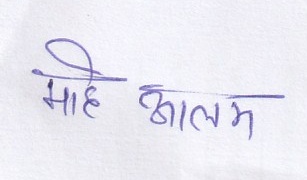 माहे आलम